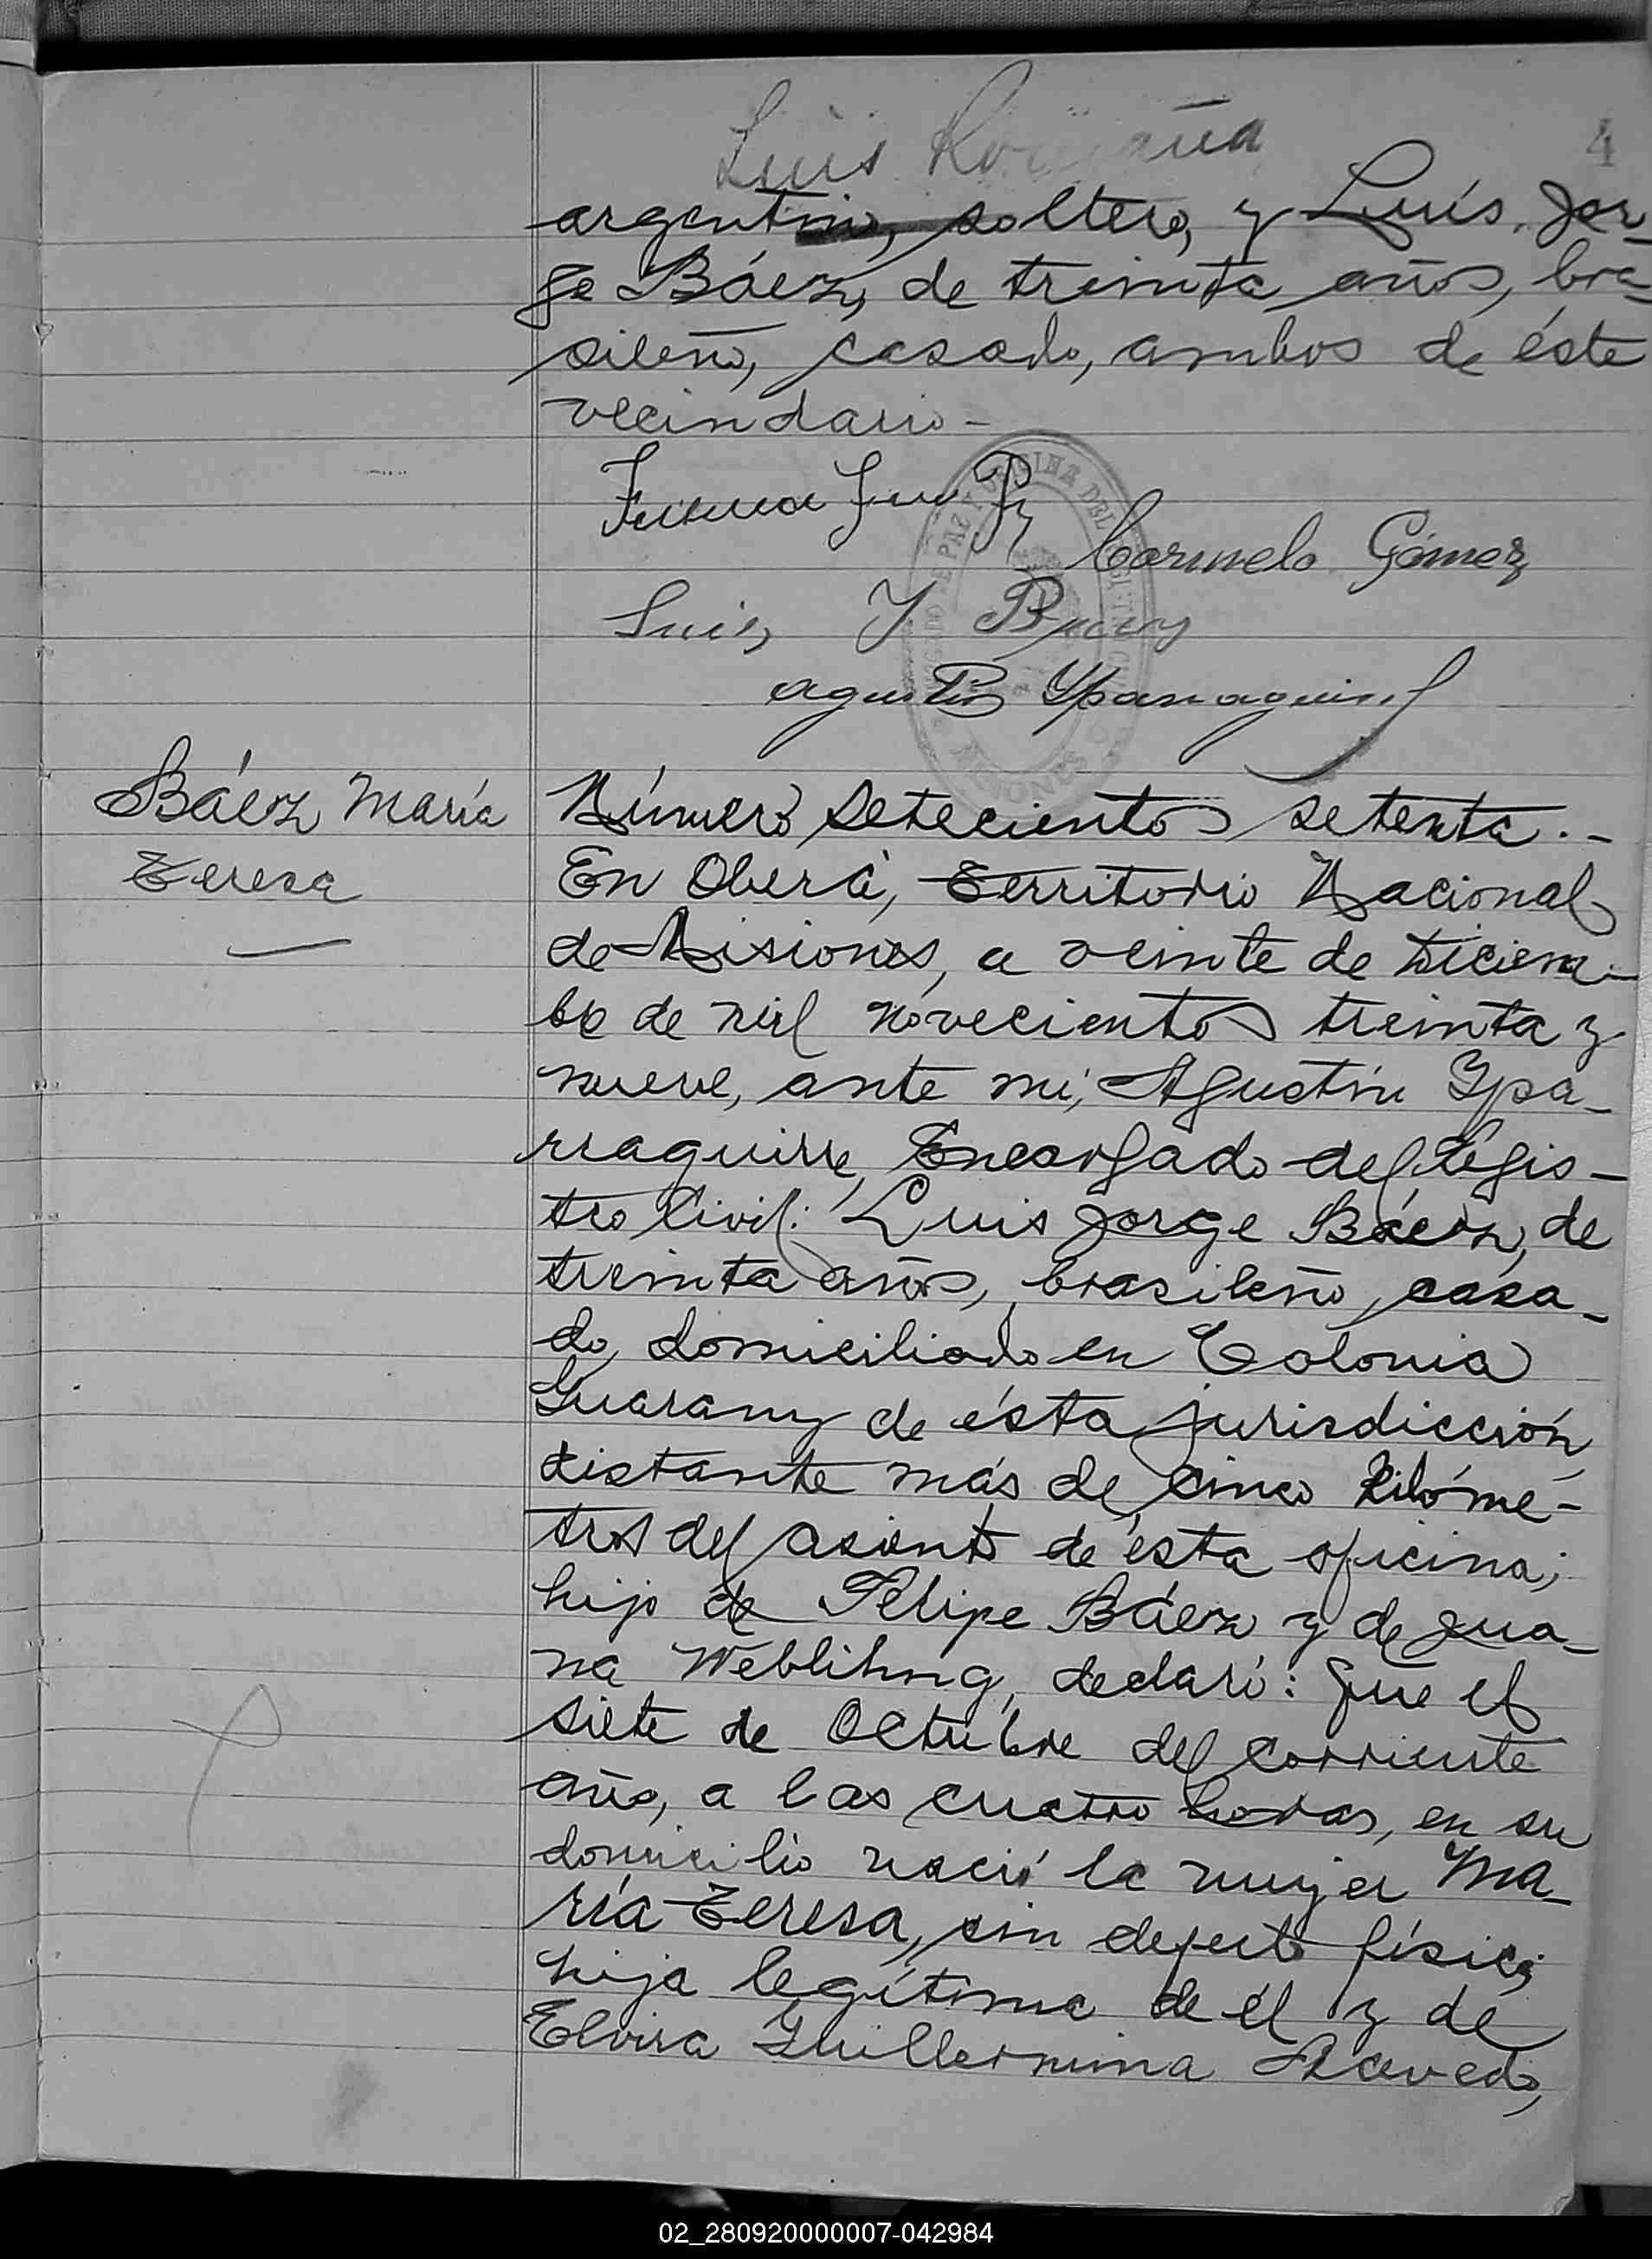 Luis
4
argentino, soltero, y Luís Jor-
ge Báez, de treinta años, bra-
sileño, casado, ambos de éste
vecindario-
Carmelo Gómez
Luis J Baez
Agustin Yparraguirre
Báez María
Teresa
Número setecientos setenta.-
En Oberá, Territorio Nacional
de Misiones, a veinte de Diciem-
bre de mil novecientos treinta y
nueve, ante mi, Agustín Ypa-
rraguirre, Encargado del Regis-
tro Civil: Luis Jorge Báez, de
treinta años, brasileño, casa-
do, domiciliado en Colonia
Guarany de ésta jurisdicción,
distante más de cinco kilóme-
tros del asiento de ésta oficina;
hijo de Felipe Báez y de Jua-
na Weblihng, declaró: Que el
siete de Octubre del corriente
año, a las cuatro horas, en su
domicilio nació la mujer Ma-
ría Teresa, sin defecto físico;
hija legítima de él y de
Elvira Guillermina Acevedo,
02_280920000007-042984